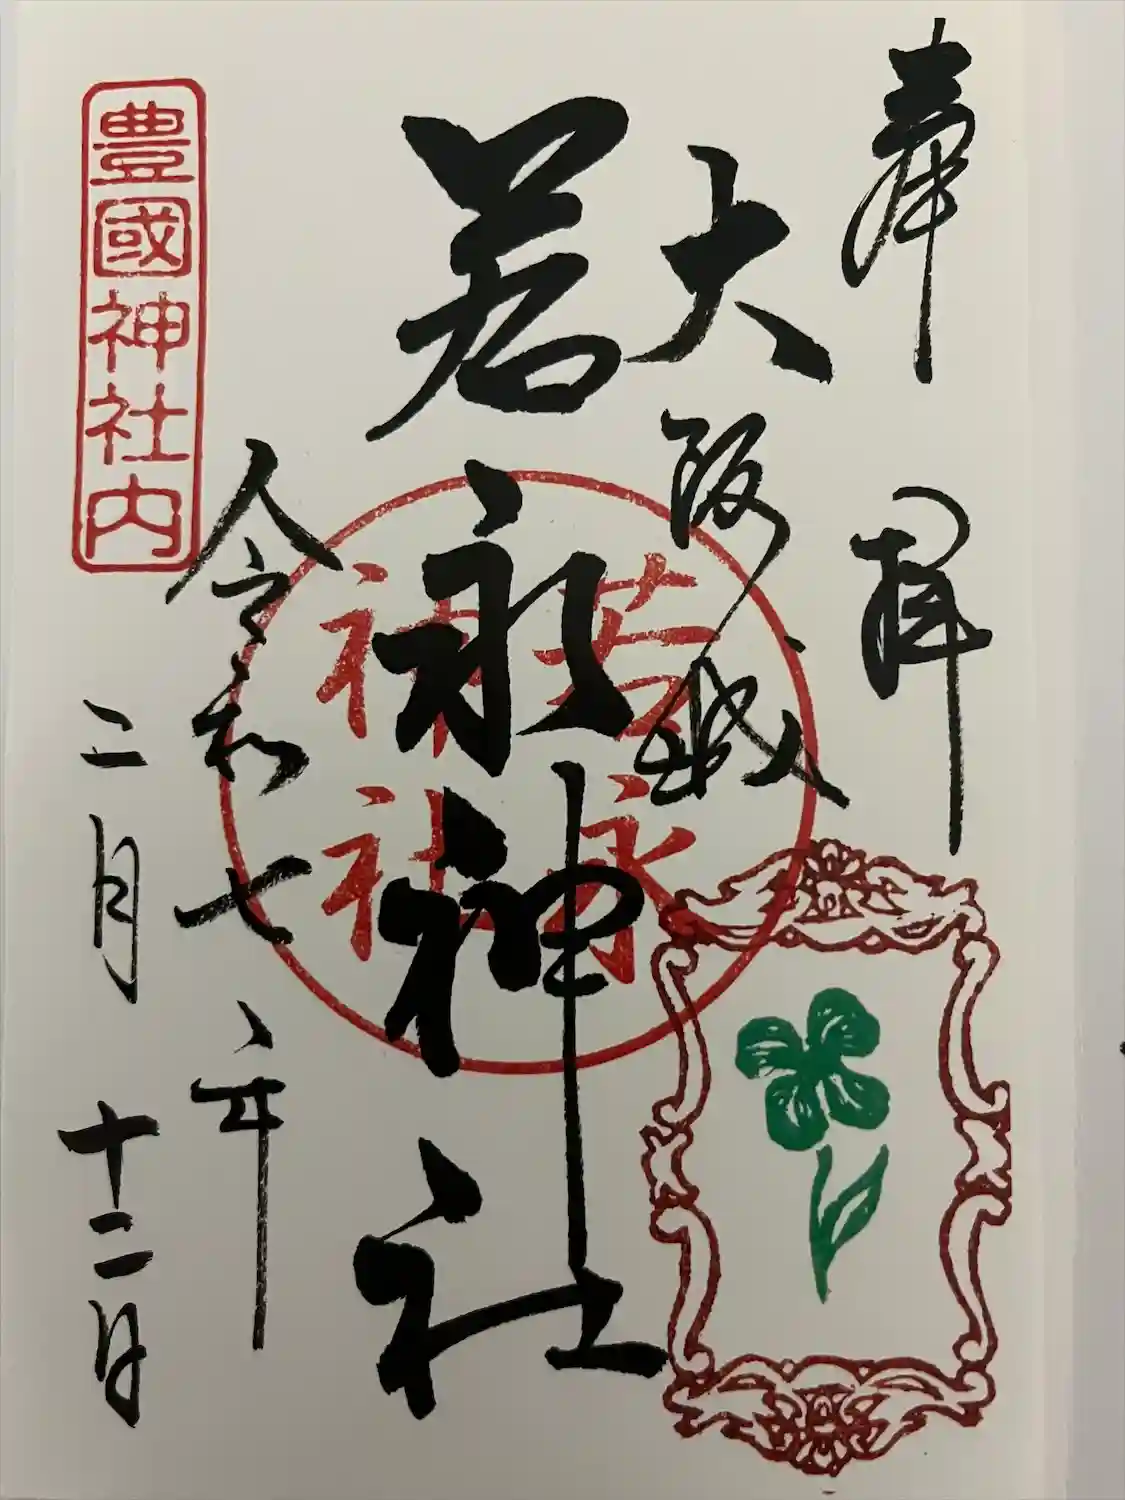 奉拝
大阪城
若永神社
若永
神社
令和七年
二月十二日
豊國神社内